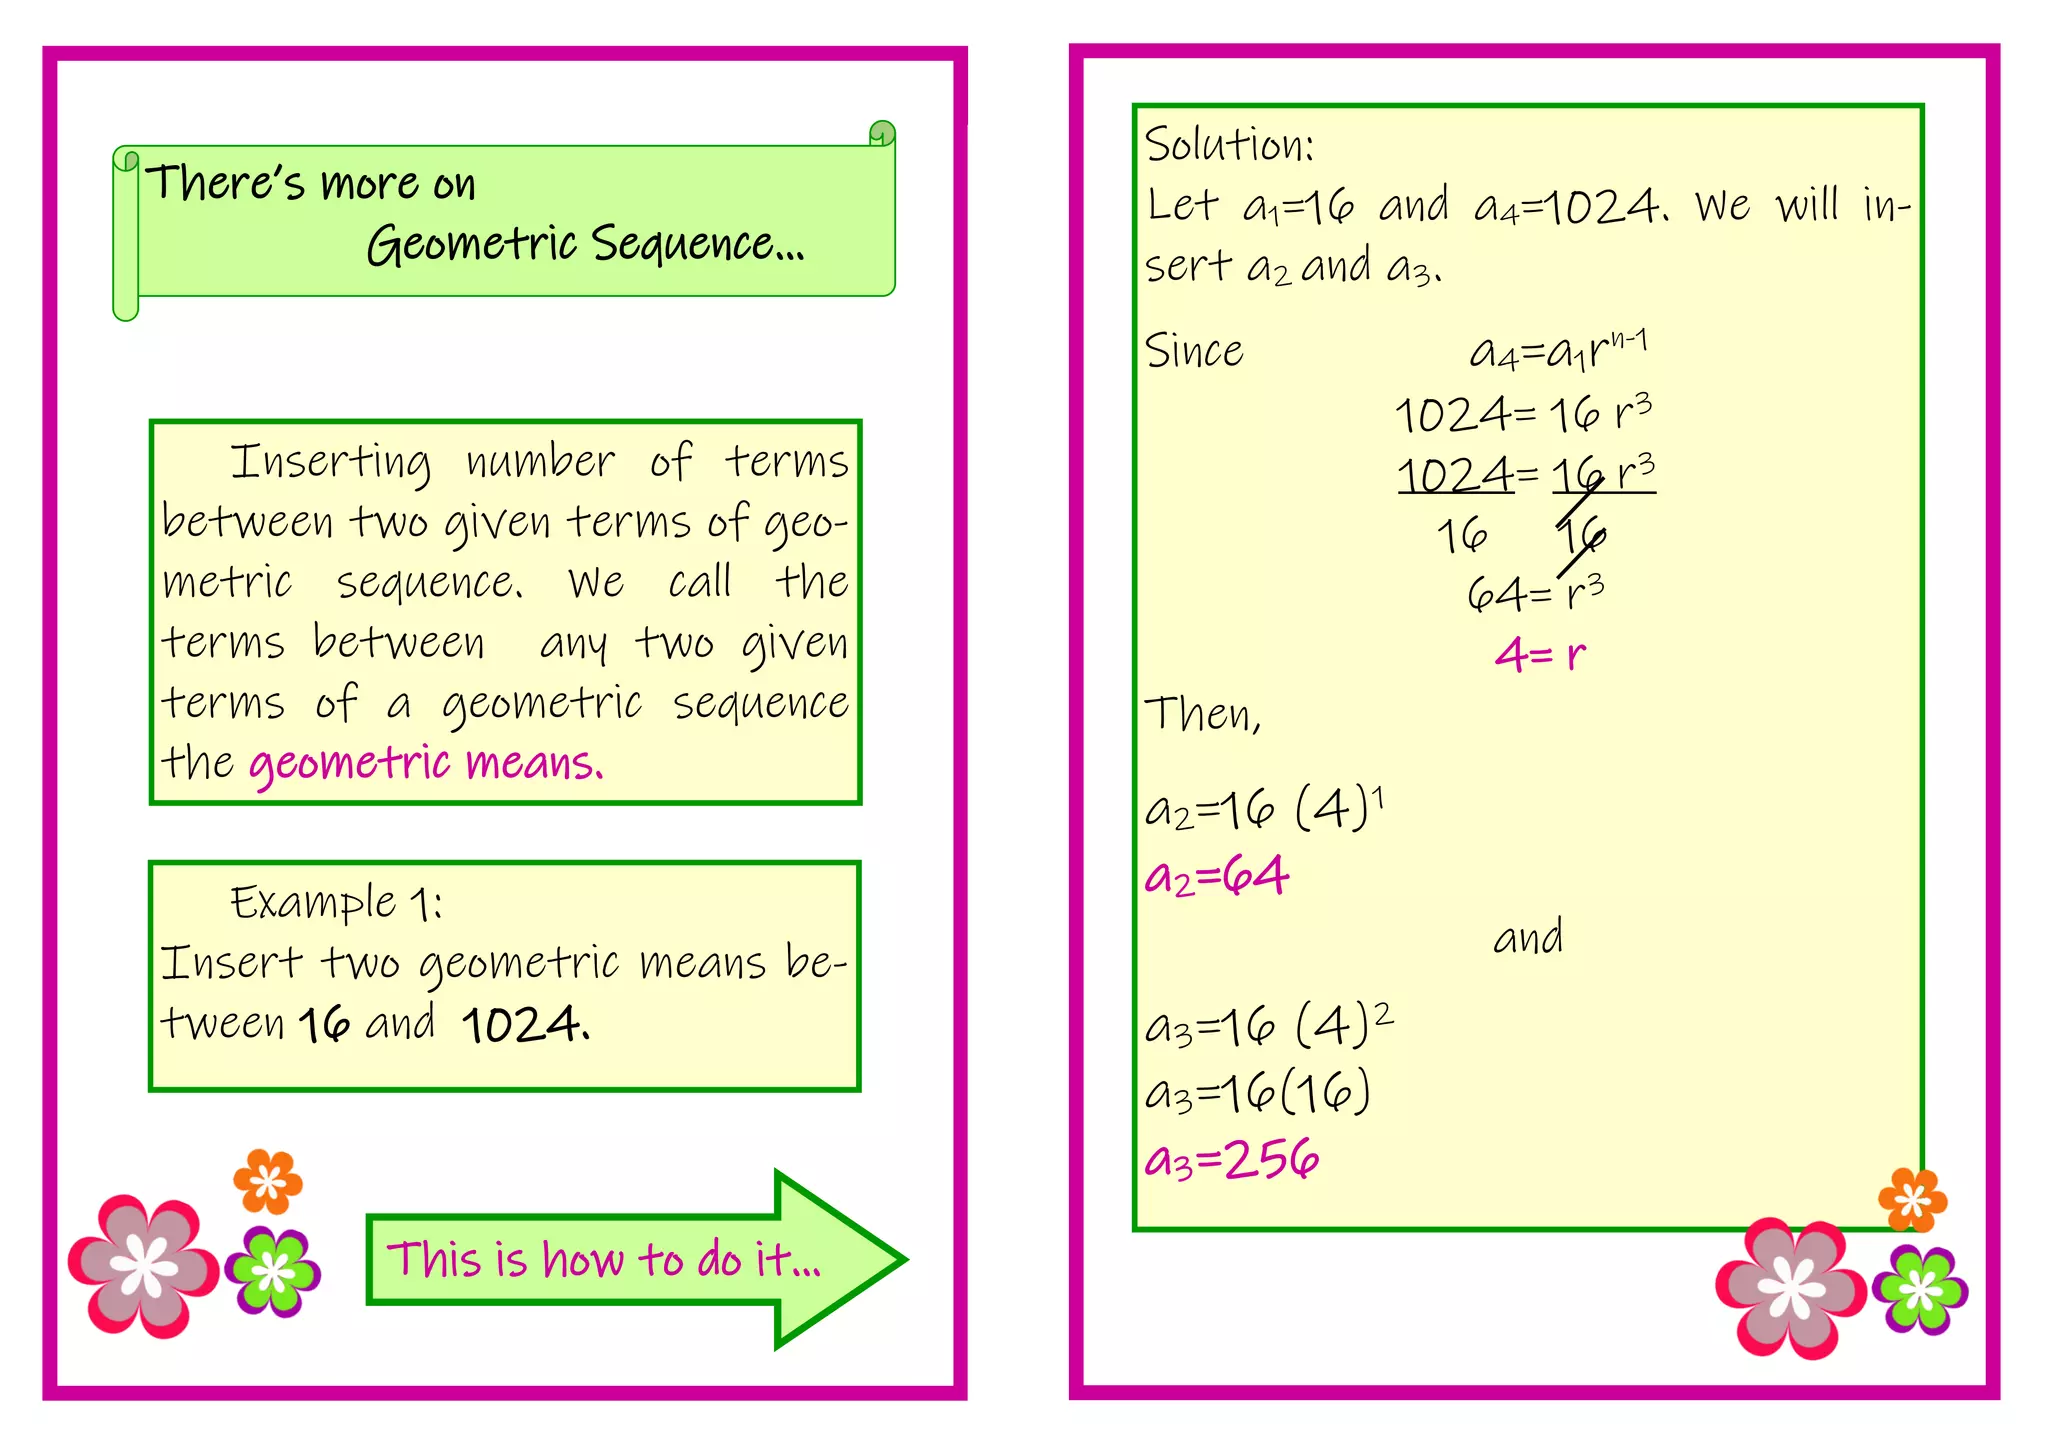 There's more on
Geometric Sequence...
Inserting number of terms
between two given terms of geo-
metric sequence. We call the
terms between any two given
terms of a geometric sequence
the geometric means.
Example 1:
Insert two geometric means be-
tween 16 and 1024.
This is how to do it...
Solution:
Let a₁=16 and a₄=1024. We will in-
sert a₂ and a₃.
Since a₄=a₁rⁿ⁻¹
1024= 16 r³
1024= 16 r³
16 16
64= r³
4= r
Then,
a₂=16 (4)¹
a₂=64
and
a₃=16 (4)²
a₃=16(16)
a₃=256